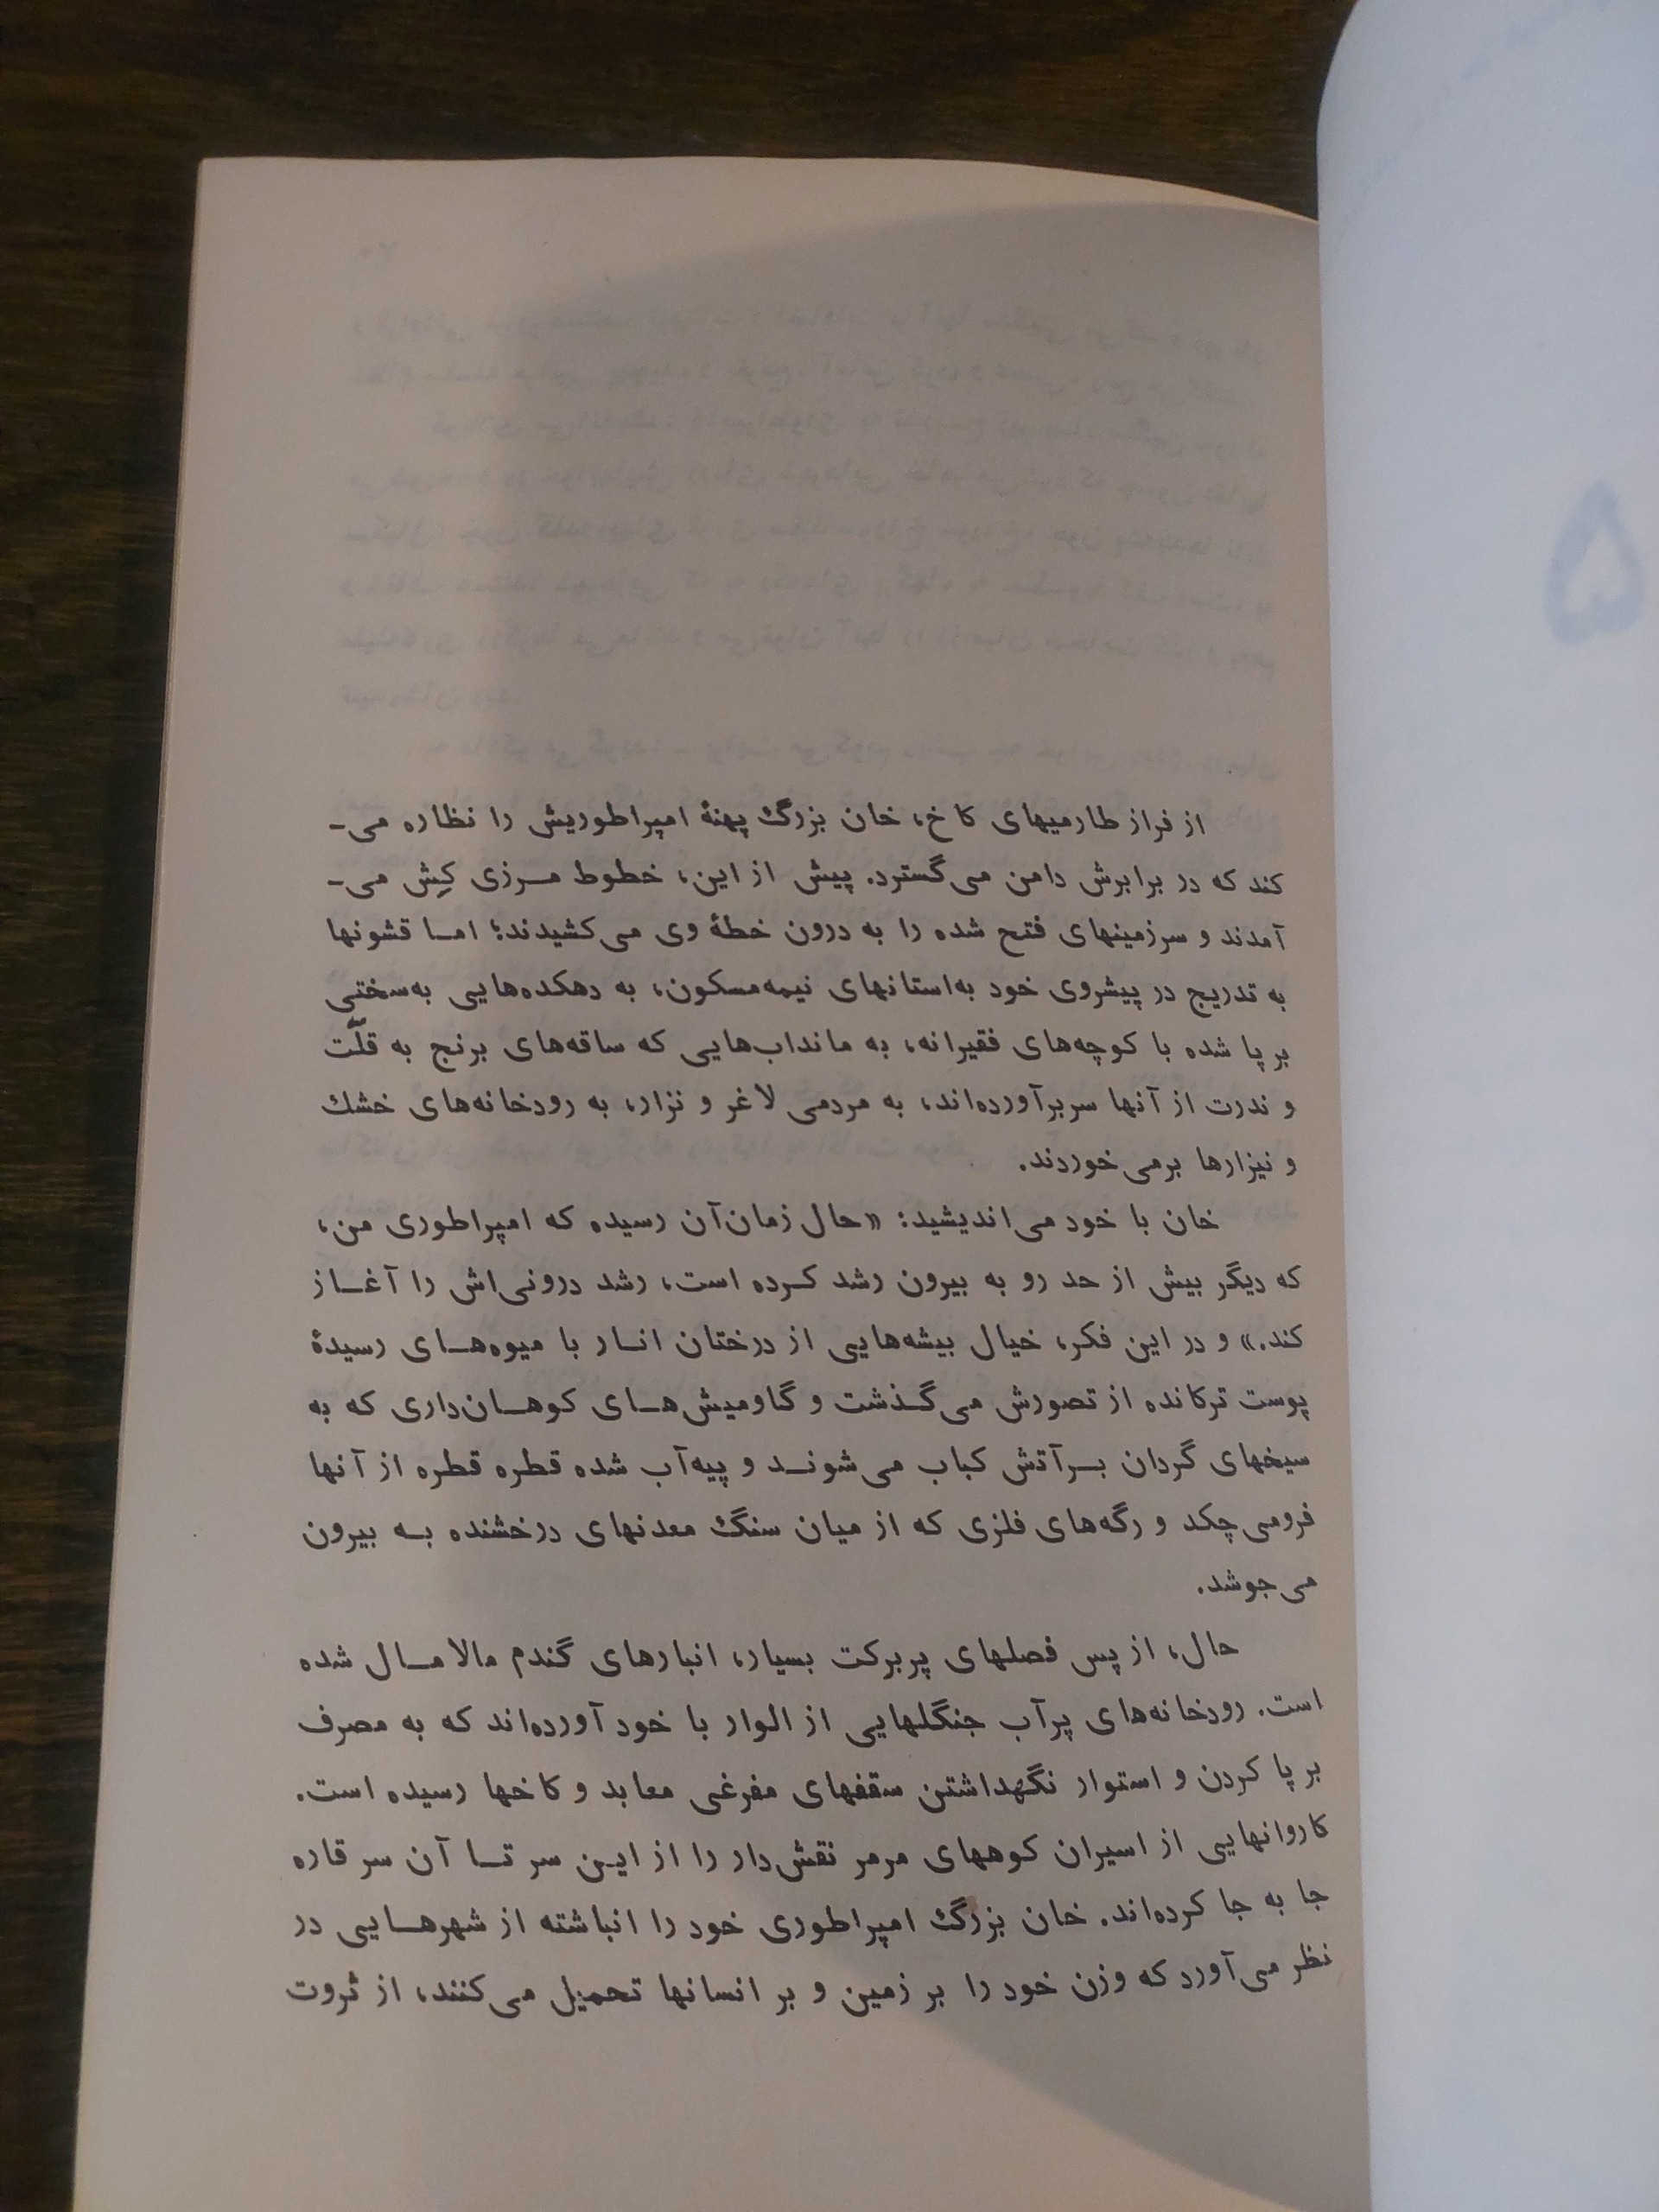 از فراز طارمیهای کاخ، خان بزرگ پهنهٔ امپراطوریش را نظاره می-
کند که در برابرش دامن می‌گسترد. پیش از این، خطوط مـرزی کِش می-
آمدند و سرزمینهای فتح شده را به درون خطهٔ وی می‌کشیدند؛ امـا قشونها
به تدریج در پیشروی خود به‌استانهای نیمه‌مسکون، به دهکده‌هایی به‌سختی
بر پا شده با کوچه‌های فقیرانه، به مانداب‌هایی که ساقه‌های برنج به قلّت
و ندرت از آنها سربرآورده‌اند، به مردمی لاغر و نزار، به رودخانه‌های خشك
و نیزارها برمی‌خوردند.
خان با خود می‌اندیشید: «حال زمان‌آن رسیده که امپراطوری من،
که دیگر بیش از حد رو به بیرون رشد کـرده است، رشد درونی‌اش را آغـاز
کند.» و در این فکر، خیال بیشه‌هایی از درختان انـار با میوه‌هـای رسیدهٔ
پوست ترکانده از تصورش می‌گـذشت و گاومیش‌هـای کوهـان‌داری که به
سیخهای گردان بـرآتش کباب می‌شونـد و پیه‌آب شده قطره قطره از آنها
فرومی‌چکد و رگه‌های فلزی که از میان سنگ معدنهای درخشنده بـه بیرون
می‌جوشد.
حال، از پس فصلهای پربرکت بسیار، انبارهای گندم مالامـال شده
است. رودخانه‌های پرآب جنگلهایی از الوار با خود آورده‌اند که به مصرف
بر پا کردن و استوار نگهداشتن سقفهای مفرغی معابد و کاخها رسیده است.
کاروانهایی از اسیران کوههای مرمر نقش‌دار را از ایـن سر تـا آن سر قاره
جا به جا کرده‌اند. خان بزرگ امپراطوری خود را انباشته از شهرهـایی در
نظر می‌آورد که وزن خود را بر زمین و بر انسانها تحمیل می‌کنند، از ثروت